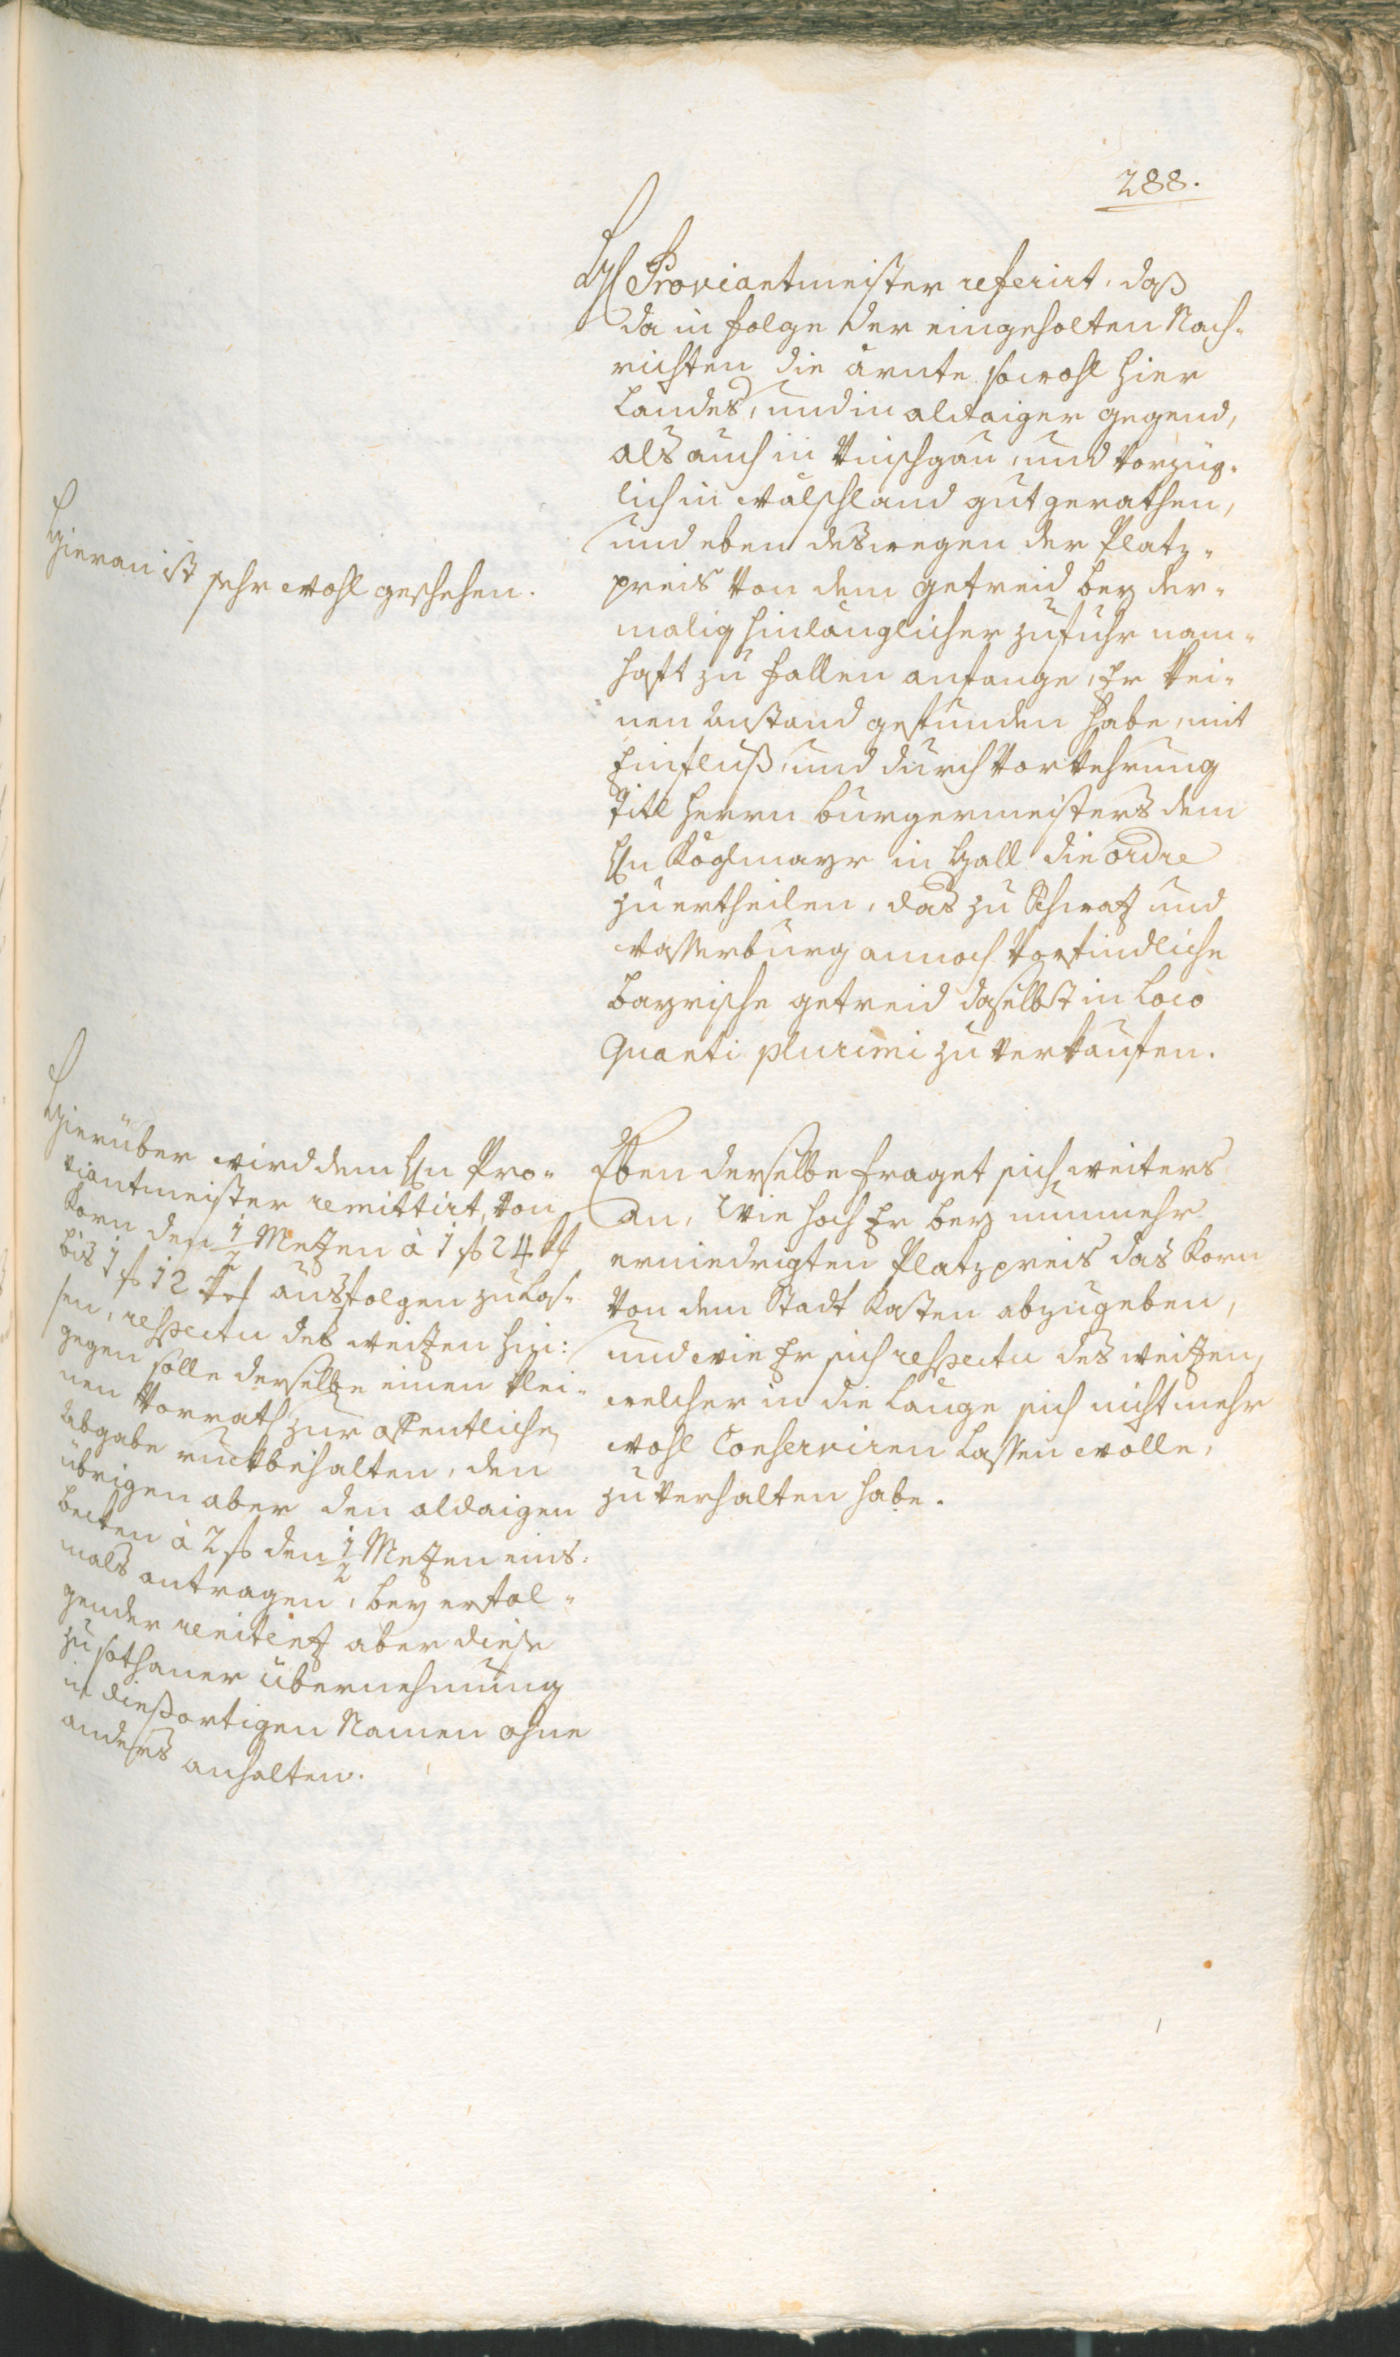 288.
H Proviantmeister referirt, daß
da in folge der eingeholten Nach-
richten die ärnte sowohl hier
Landes, und in aldaiger gegend,
als auch in Vinschgau, und vorzüg-
lich in wälschland gut gerathen,
und eben deswegen der Platz-
preis von dem getreid bey der-
malig hinlänglicher zufuhr nam-
haft zu fallen anfange, Er kei-
nen anstand gefunden habe, mit
Einfluß, und durch Vorkehrung
Titl Herrn burgermeisters dem
Hn Köglmayr in Hall die ordre
zu ertheilen, das zu Schwatz und
wasserburg annoch vorfindliche
bayrische getreid daselbst in Loco
Quanti plurimi zu verkaufen.
Hieran ist sehr wohl geschehen.
Eben derselbe fraget sich weiters
an, Wie hoch Er bey nunmehr
erniedrigten Platzpreis das Korn
von dem Stadt Kasten abzugeben,
und wie Er sich respectu des weitzen,
welcher in die Länge sich nicht mehr
wohl Conserviren Lassen wolle,
zu verhalten habe.
Hierüber wird dem Hn Pro-
viantmeister remittirt, von
Korn den 1/2 Metzen à 1 f 24 kr
bis 1 f 12 kr ausfolgen zu Las-
sen, respectu des weitzen hin:
gegen solle derselbe einen klei-
nen Vorrath zur offentliche
Abgabe ruckbehalten, den
übrigen aber den aldaigen
becken à 2 f den 1/2 Metzen eins-
mals antragen, bey erfol-
gender renitentz aber diese
zu sothaner übernehmung
in dießortigen Namen ohne
anders anhalten.